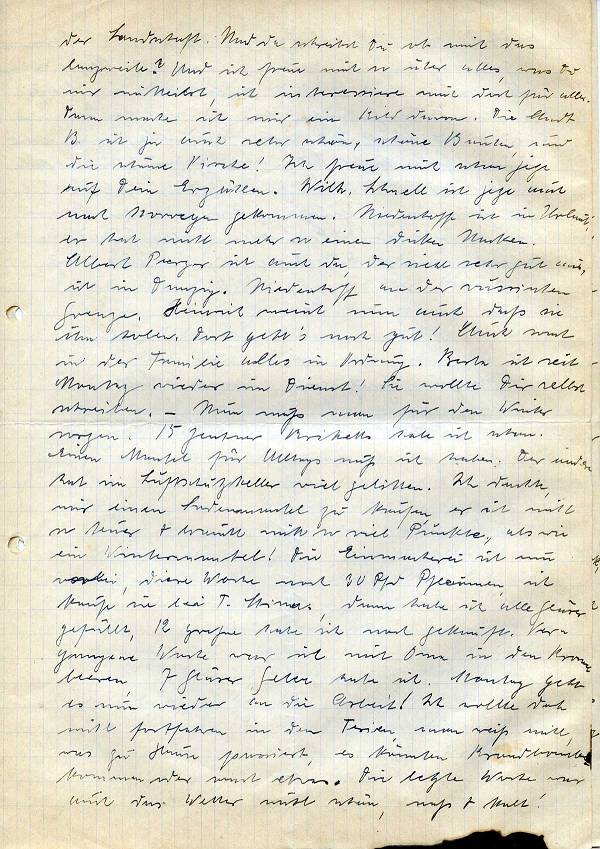 der Landschaft. Und da schreibst Du ob mit das
langweile? Und ich freue mich so über alles, was Du
mir mitteilst, ich interessiere mich doch für alles.
Dann mache ich mir ein Bild davon. Die Stadt
B. ist ja auch sehr schön, schöne Bauten, und
die schöne Kirche! Ich freue mich schon jetzt
auf Dein Erzählen. Wilh. Schnell ist jetzt auch
nach Norwegen gekommen. Niedenhoff ist in Urlaub,
er hat nicht mehr so einen dicken Nacken.
Albert ist auch da, der sieht sehr gut aus,
ist in Danzig. Niedenhoff an der russischen
Grenze. Heinrich meint nun auch daß sie
ihn holen. Dort geht's noch gut! Auch sonst
in der Familie alles in Ordnung. Berta ist seit
Montag wieder im Dienst! Sie wollte Dir selbst
schreiben. – Nun muß man für den Winter
sorgen. 15 Zentner Briketts habe ich schon.
Einen Mantel für Alltags muß ich haben. Der andere
hat im Luftschutzkeller viel gelitten. Ich dachte,
mir einen Lodenmantel zu kaufen, er ist nicht
so teuer + braucht nicht so viel Punkte, als wie
ein Wintermantel! Die Einmacherei ist nun
vorbei, diese Woche noch 30 Pfd Pflaumen, ich
kaufe sie bei T. Stinas, dann habe ich alle Gläser
gefüllt, 12 große habe ich noch gekauft. Ver-
gangene Woche war ich mit Oma in den Brom
beeren. 7 Gläser Gelee habe ich. Montag geht
es nun wieder an die Arbeit! Ich wollte doch
nicht fortfahren in den Ferien, man weiß nicht,
was zu Hause passiert, es könnten Brandbomben
kommen oder sonst etwas. Die letzte Woche war
auch das Wetter nicht schön, naß + kalt!